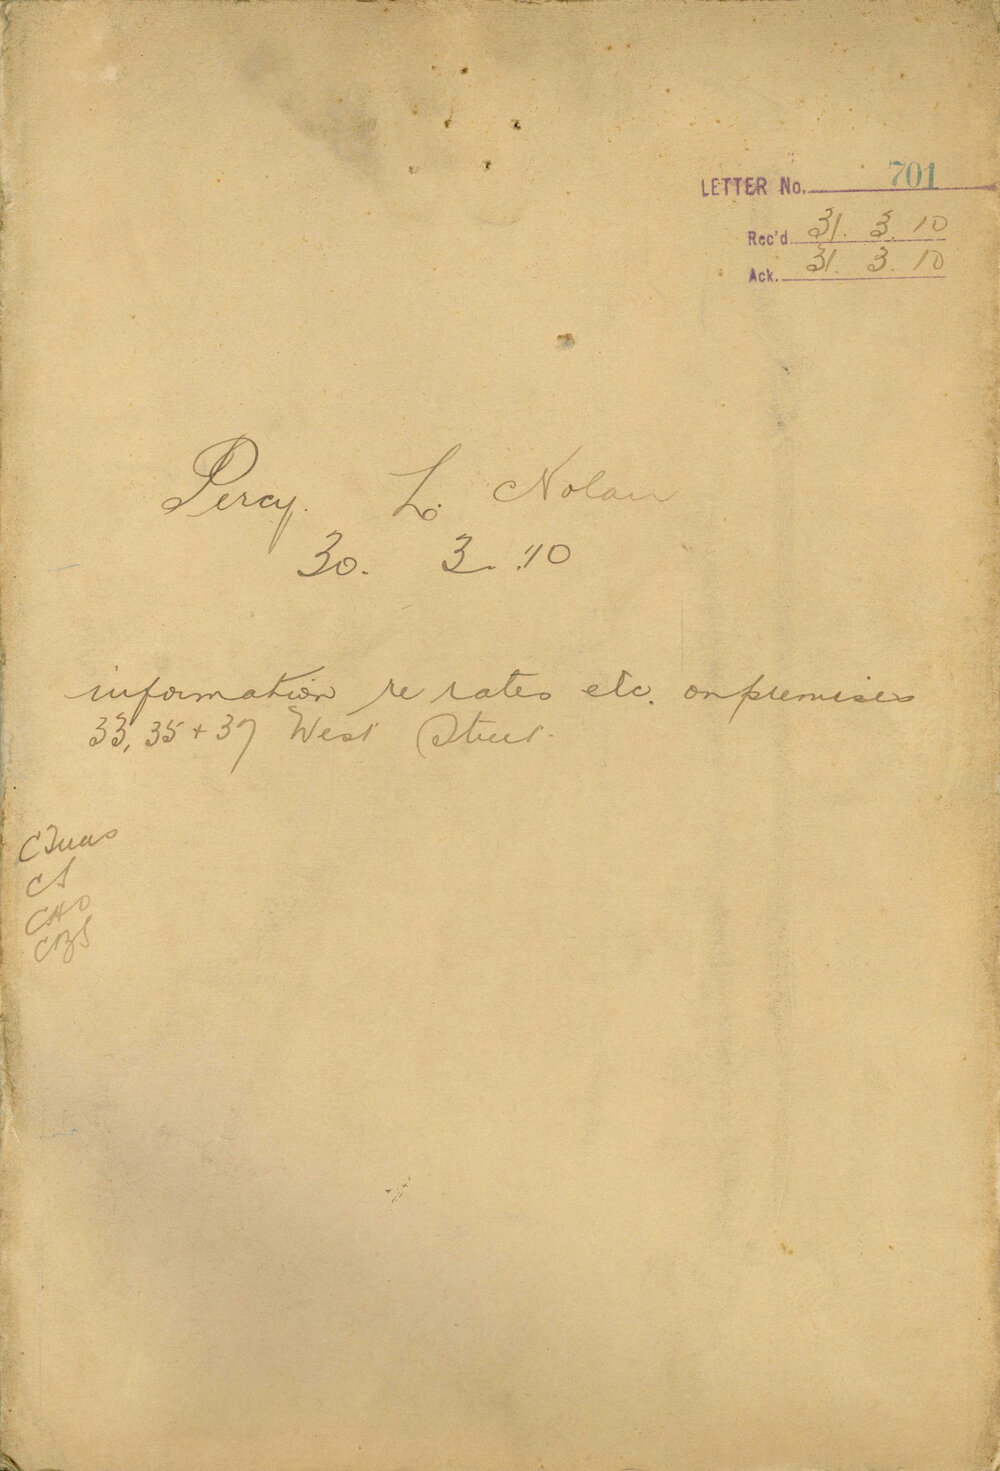 LETTER No. 701
Rec'd 31. 3. 10
Ack. 31. 3. 10
Percy. L. Nolan
30. 3. 10
information re rates etc. on premises
33, 35 + 37 West Street.
CTreas
CS
CHO
CBS